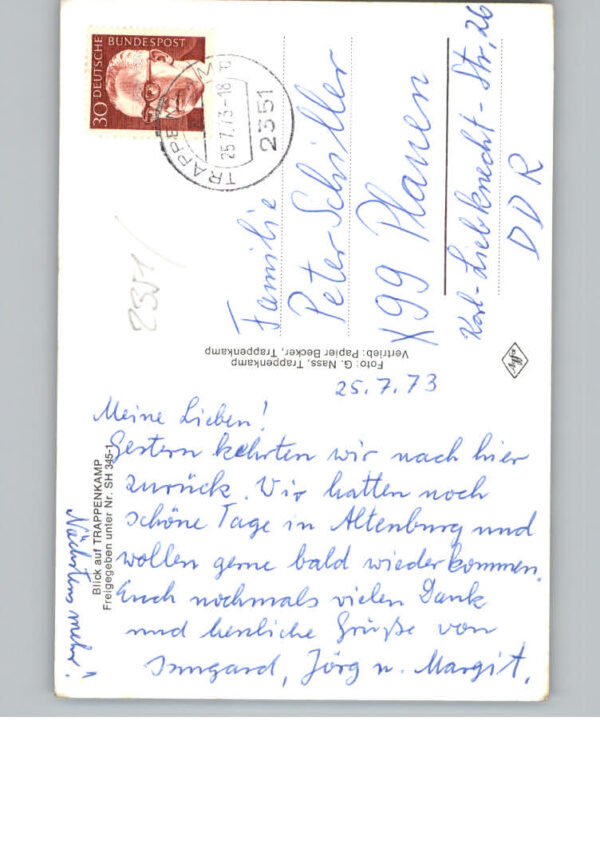 30 DEUTSCHE
BUNDESPOST
TRAPPENKAMP
25.7.73-18
2351
2351/
Familie
Peter Schiller
X99 Plauen
Karl-Liebknecht-Str. 26
DDR
Foto: G. Nass, Trappenkamp
Vertrieb: Papier Becker, Trappenkamp
25.7.73
Meine Lieben!
Gestern kehrten wir nach hier
zurück. Wir hatten noch
schöne Tage in Altenburg und
wollen gerne bald wiederkommen.
Euch nochmals vielen Dank
und herzliche Grüße von
Irmgard, Jörg u. Margit.
Nächstens mehr!
Blick auf TRAPPENKAMP
Freigegeben unter Nr. SH 345-1